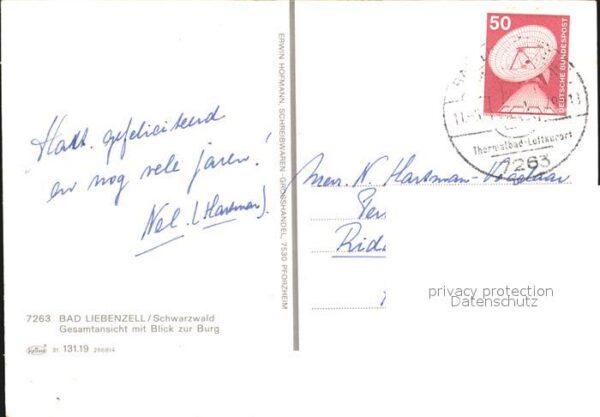 Hart. gefeliciteerd
en nog vele jaren!
Nel. (Hartman).
7263 BAD LIEBENZELL/Schwarzwald
Gesamtansicht mit Blick zur Burg
51 131.19 286814
ERWIN HOFMANN, SCHREIBWAREN-GROSSHANDEL, 7530 PFORZHEIM
50
DEUTSCHE BUNDESPOST
Thermalbad-Luftkurort
7263
Mevr. N. Hartman-
Rid
privacy protection
Datenschutz